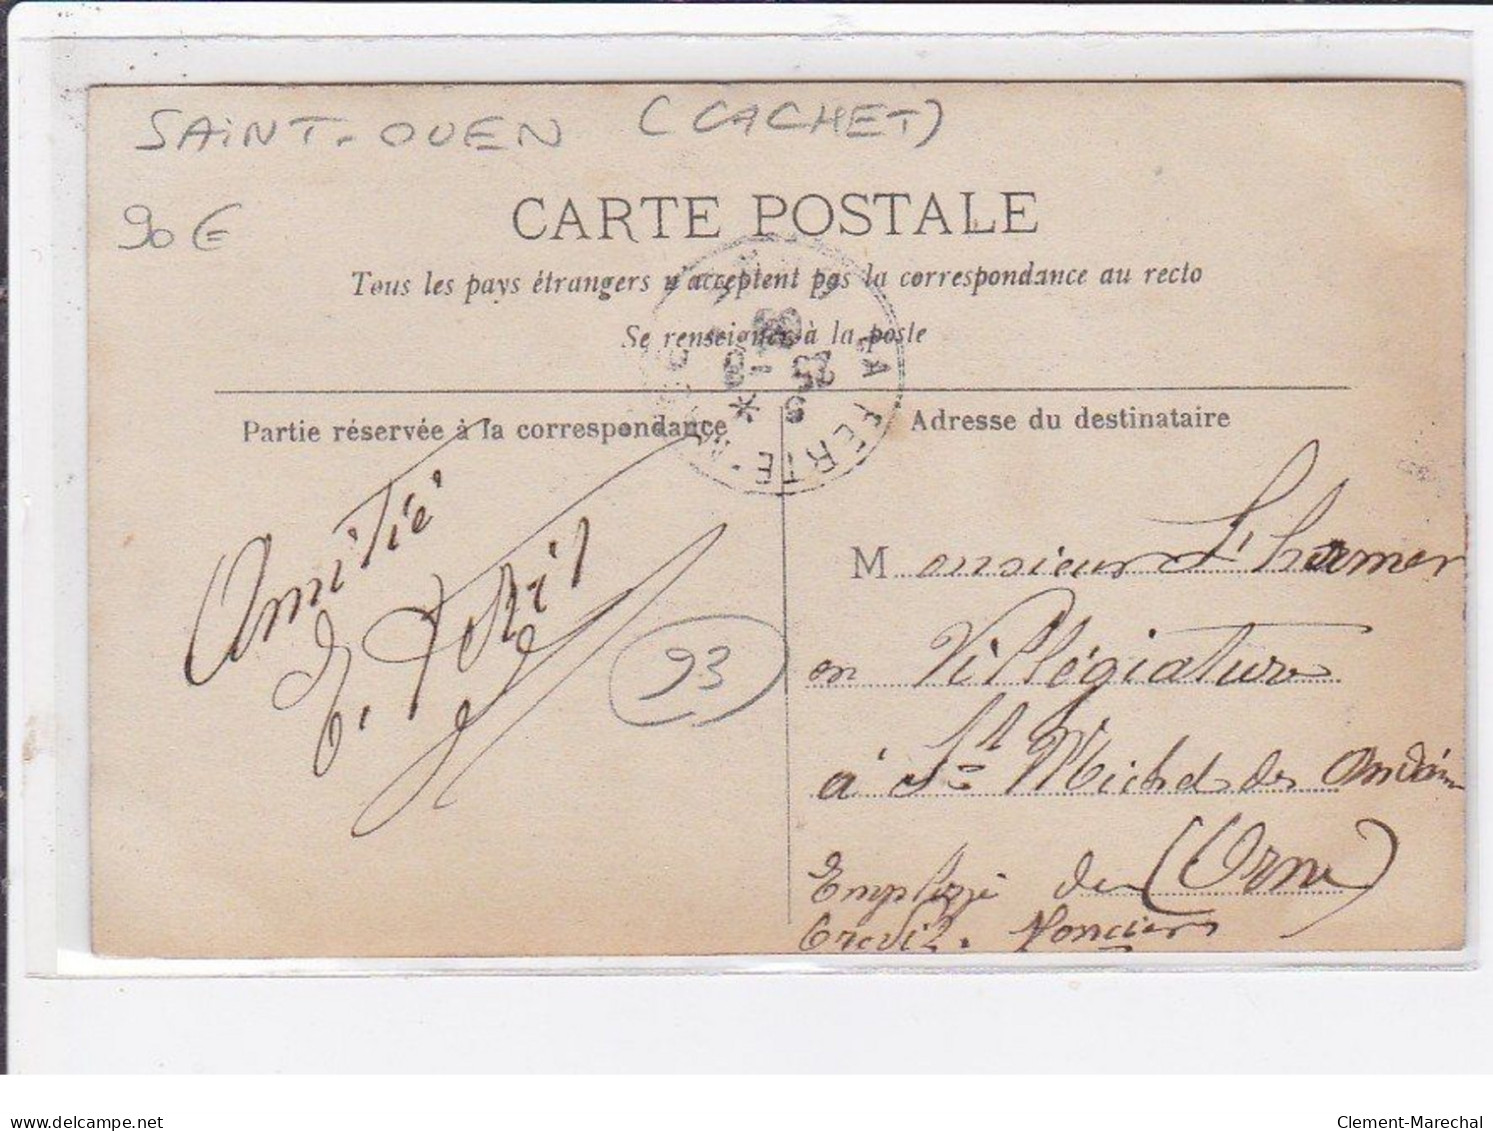 SAINT-OUEN (CACHET)
90€
CARTE POSTALE
Tous les pays étrangers n'acceptent pas la correspondance au recto
Se renseigner à la poste
LA FERTE-MACE
* 25 - 8
08
ORNE
Partie réservée à la correspondance
Adresse du destinataire
Amitié
93
Monsieur Lhermer
en Villégiature
à St Michel des Andain
(Orne)
Employé de
www.delcampe.net
Clement-Marechal